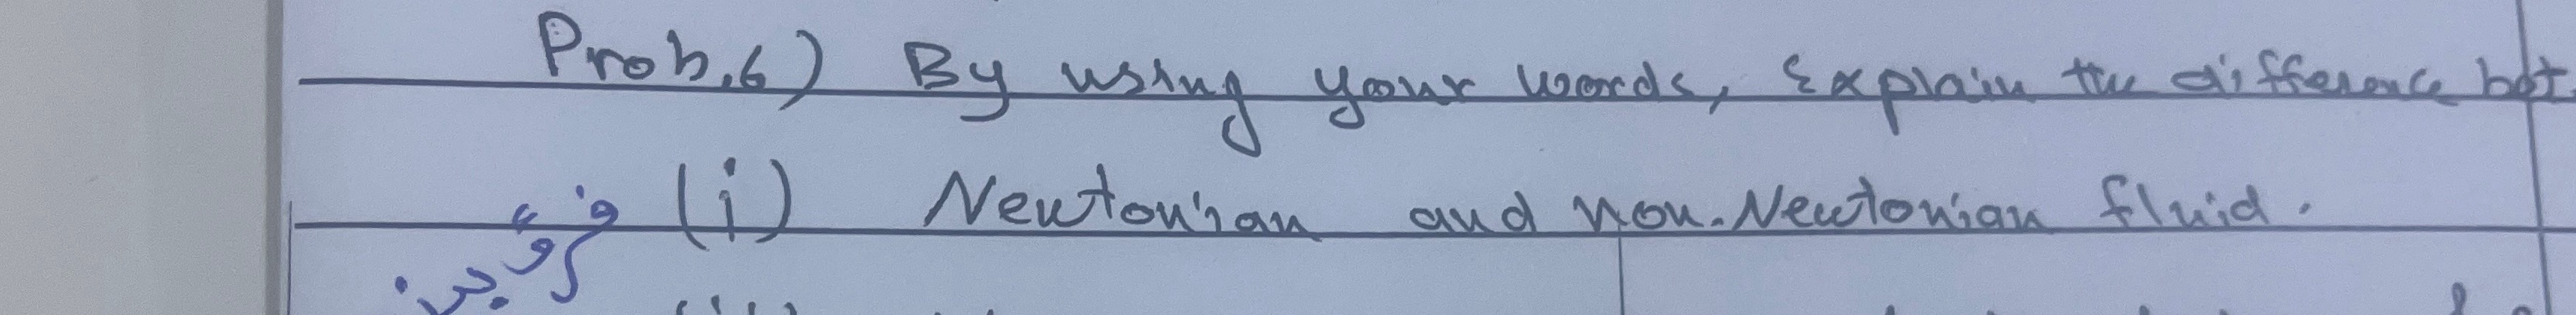 Prob.6) By using your words, Explain the difference bet.
(i) Newtonian and non-Newtonian fluid.